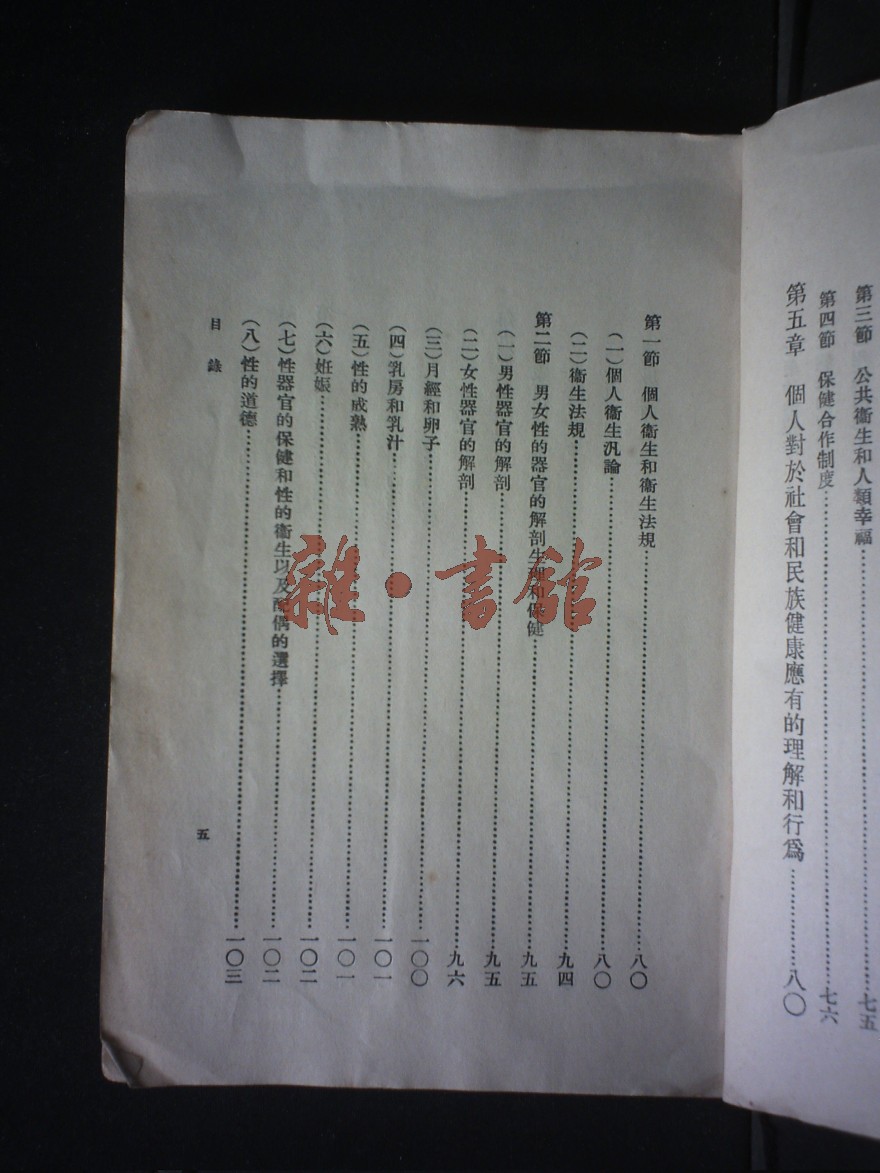 第三節　公共衞生和人類幸福……七五
第四節　保健合作制度……七六
第五章　個人對於社會和民族健康應有的理解和行爲……八〇
第一節　個人衞生和衞生法規……八〇
（一）個人衞生汎論……八〇
（二）衞生法規……九四
第二節　男女性的器官的解剖生理和保健……九五
（一）男性器官的解剖……九五
（二）女性器官的解剖……九六
（三）月經和卵子……一〇〇
（四）乳房和乳汁……一〇一
（五）性的成熟……一〇一
（六）妊娠……一〇二
（七）性器官的保健和性的衞生以及配偶的選擇……一〇二
（八）性的道德……一〇三
目錄
五
雜·書館